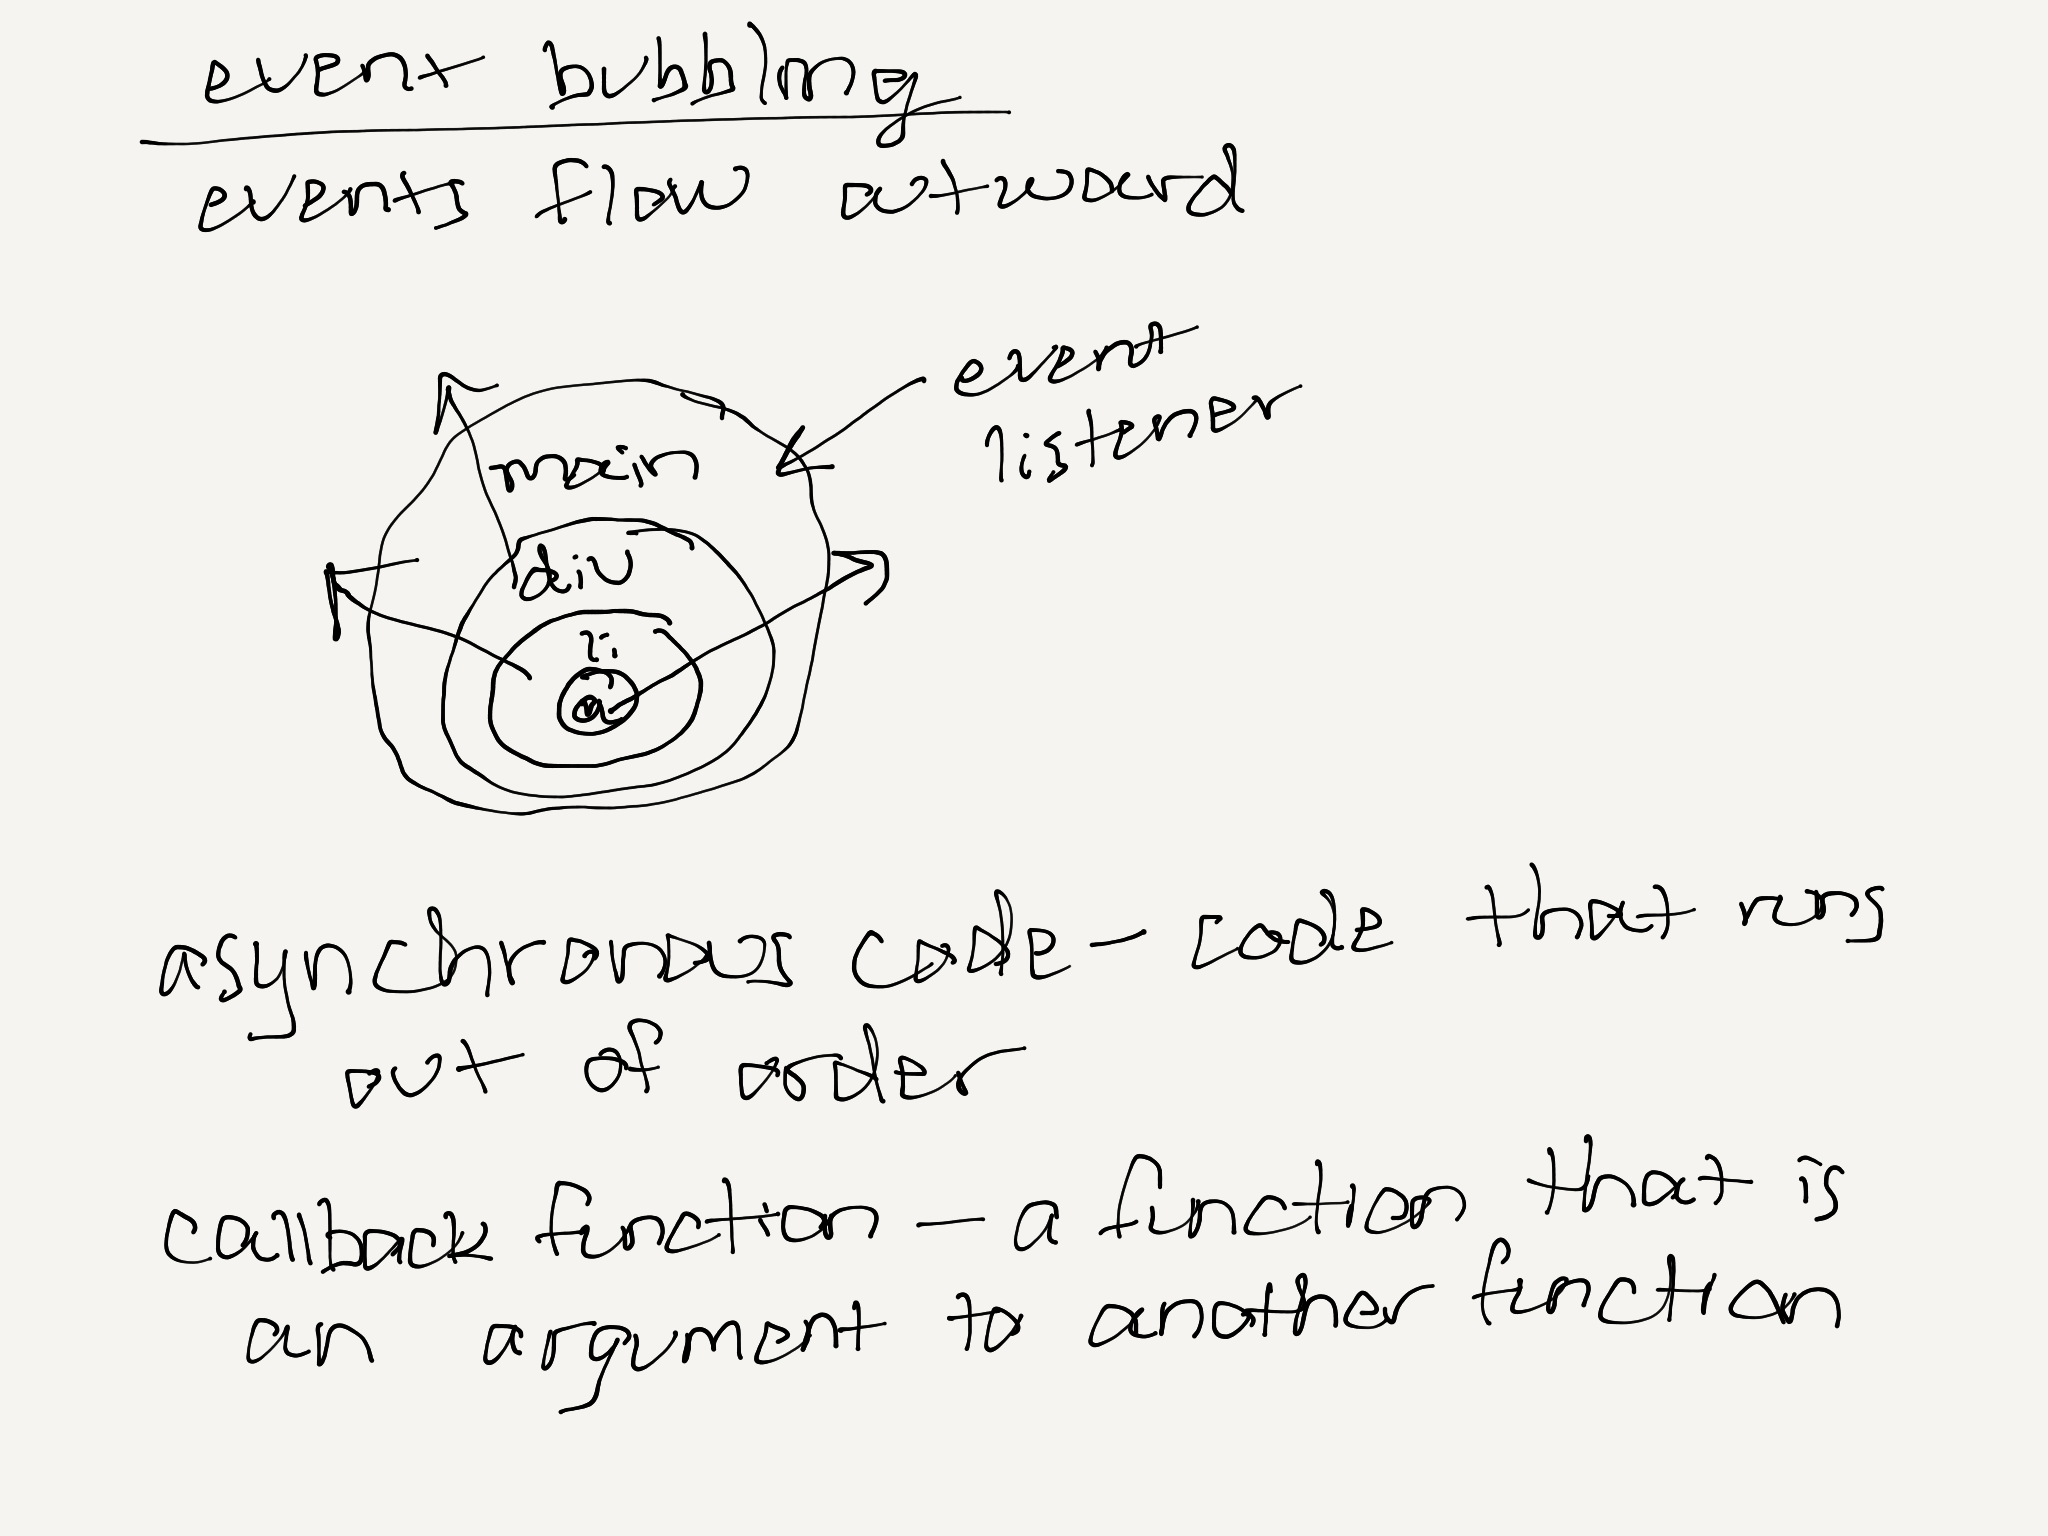 event bubbling
events flow outward
event
listener
main
div
li
a
asynchronous code – code that runs
out of order
callback function – a function that is
an argument to another function